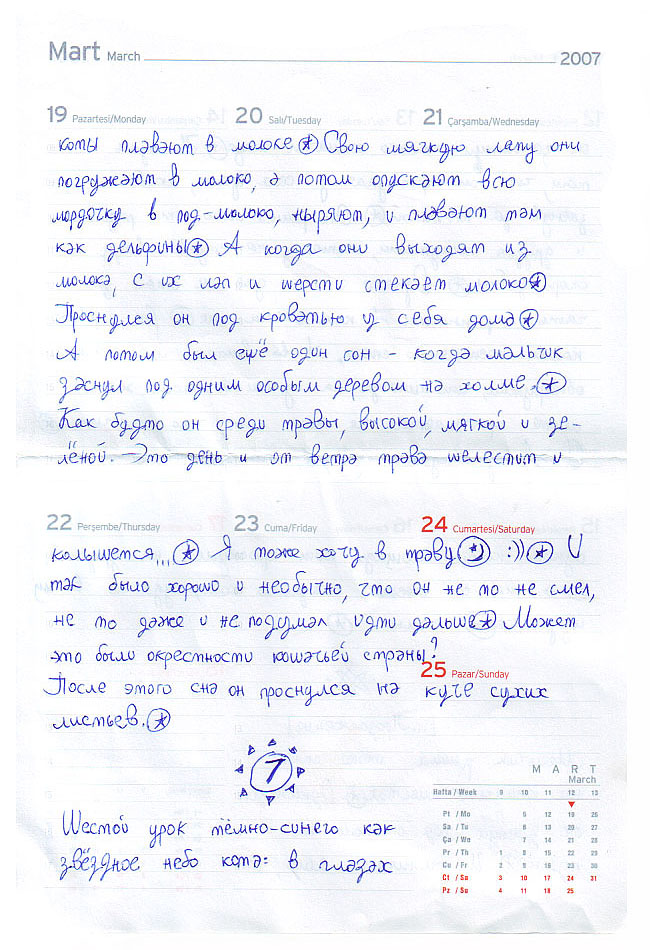 Mart March 2007
19 Pazartesi/Monday 20 Salı/Tuesday 21 Çarşamba/Wednesday
коты плавают в молоке * Свою мягкую лапу они
погружают в молоко, а потом опускают всю
мордочку в под-молоко, ныряют, и плавают там
как дельфины * А когда они выходят из
молока, с их лап и шерсти стекает молоко *
Проснулся он под кроватью у себя дома *
А потом был ещё один сон - когда мальчик
заснул под одним особым деревом на холме. *
Как будто он среди травы, высокой, мягкой и зе-
лёной. Это день и от ветра трава шелестит и
22 Perşembe/Thursday 23 Cuma/Friday 24 Cumartesi/Saturday
колышется... * Я тоже хочу в траву * :)) * И
так было хорошо и необычно, что он не то не смел,
не то даже и не подумал идти дальше * Может
это были окрестности кошачьей страны?
25 Pazar/Sunday
После этого сна он проснулся на куче сухих
листьев. *
7
Шестой урок тёмно-синего как
звёздное небо кота: в глазах
M A R T
March
Hafta / Week 9 10 11 12 13
Pt / Mo 5 12 19 26
Sa / Tu 6 13 20 27
Ça / We 7 14 21 28
Pr / Th 1 8 15 22 29
Cu / Fr 2 9 16 23 30
Ct / Sa 3 10 17 24 31
Pz / Su 4 11 18 25